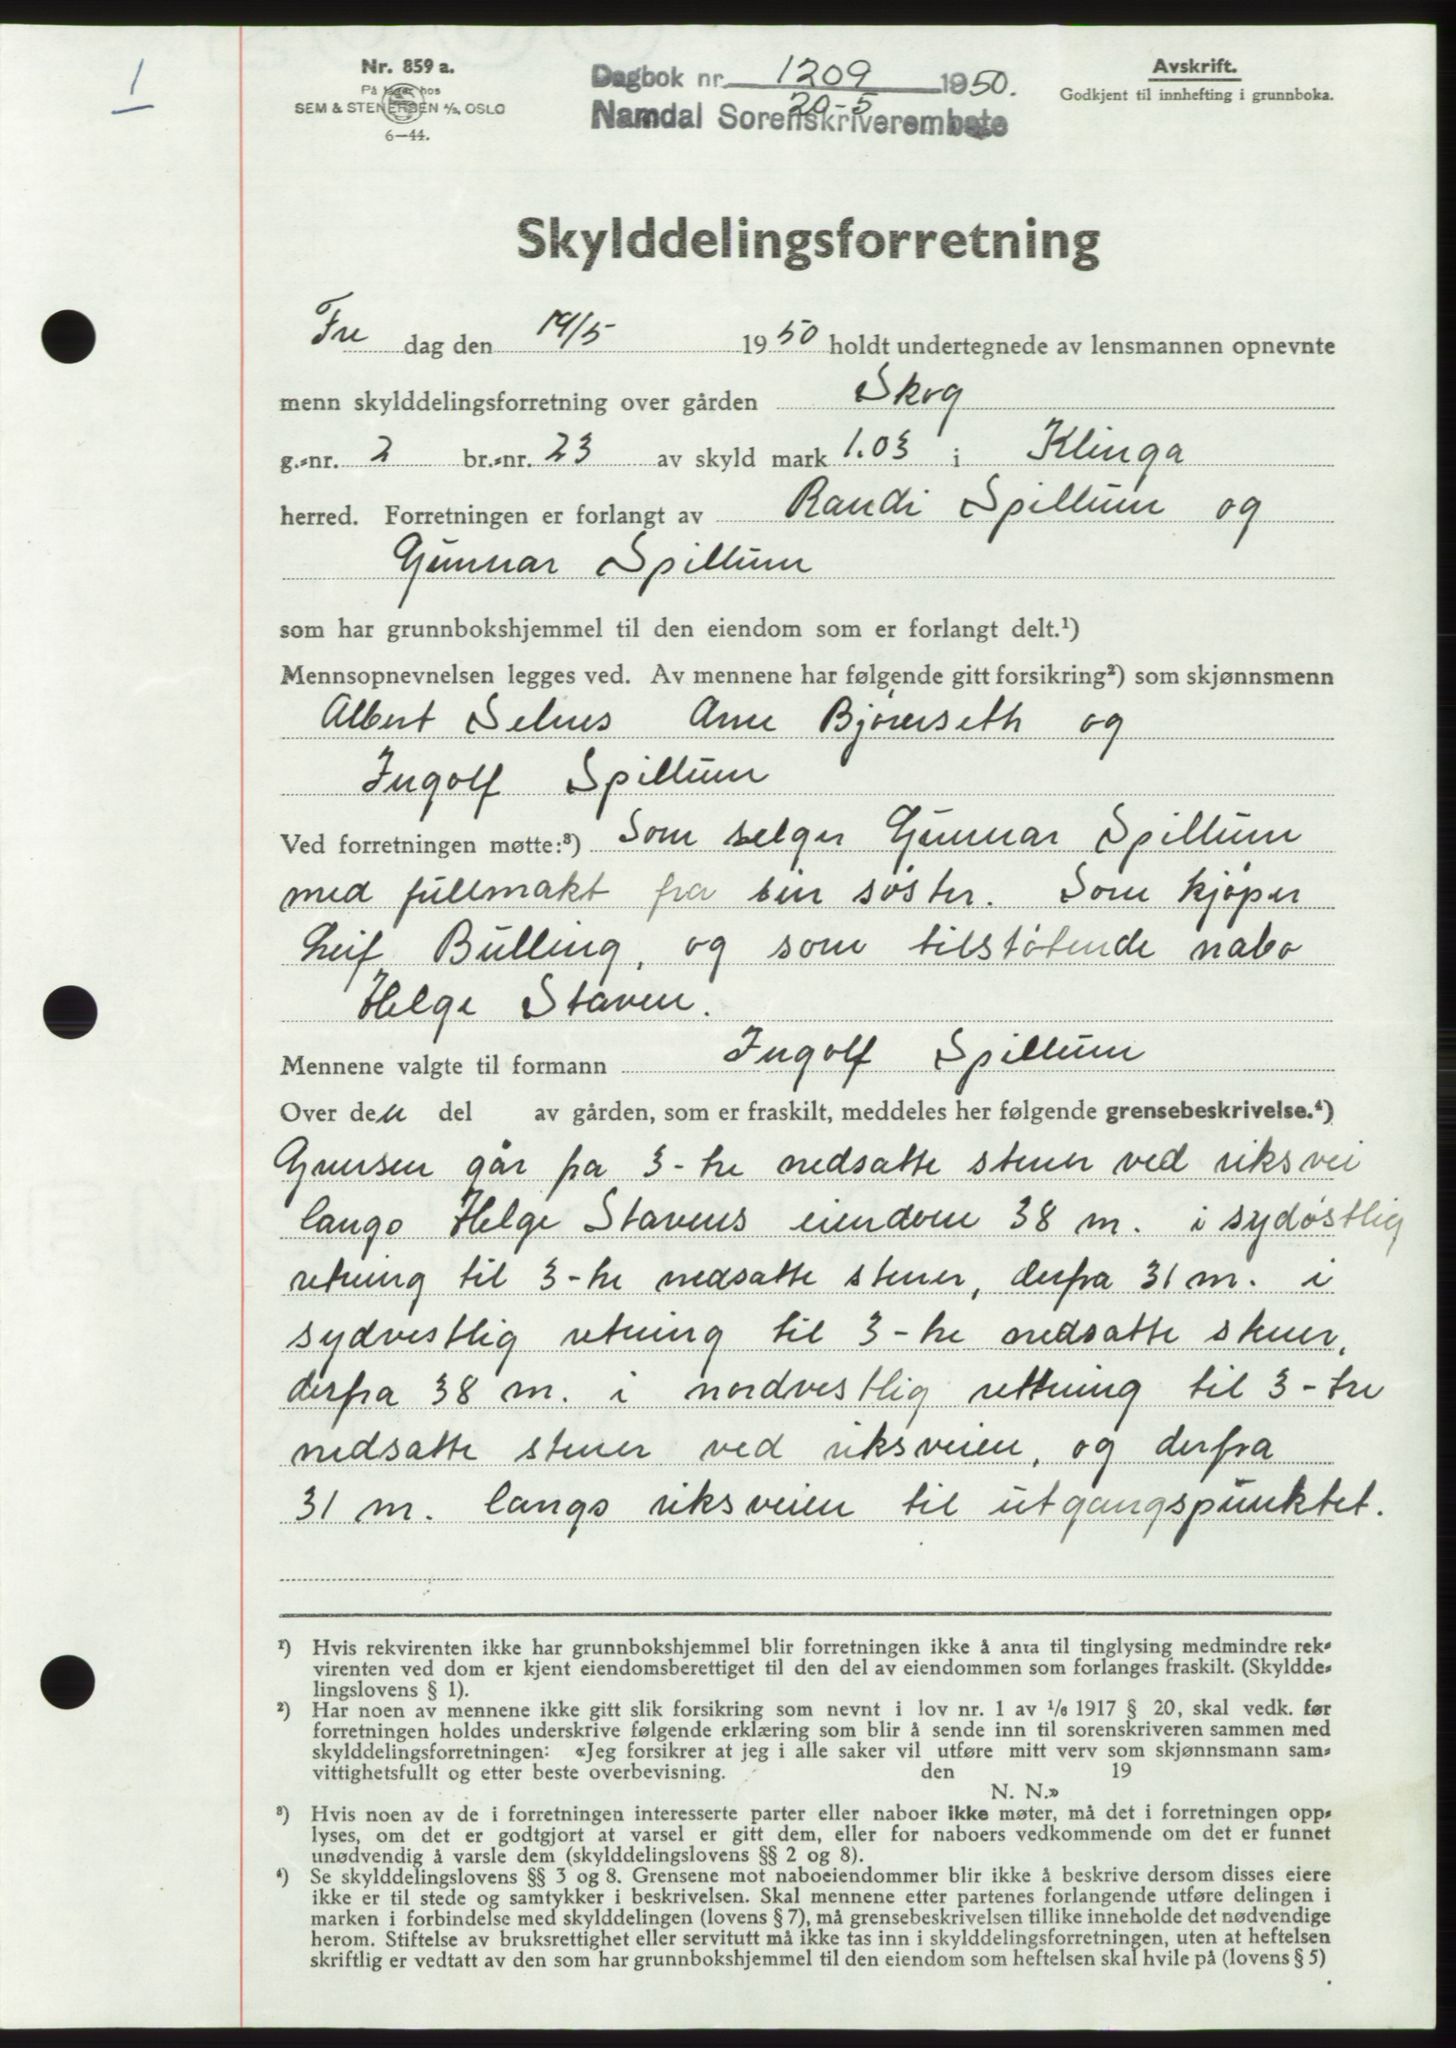 1
Nr. 859 a.
På lager hos
SEM & STENERSEN A/S, OSLO
6—44.
Dagbok nr. 1209 1950.
20-5
Namdal Sorenskriverembete
Avskrift.
Godkjent til innhefting i grunnboka.
Skylddelingsforretning
Fre dag den 19/5 1950 holdt undertegnede av lensmannen opnevnte
menn skylddelingsforretning over gården Skog
g.-nr. 2 br.-nr. 23 av skyld mark 1.03 i Klinga
herred. Forretningen er forlangt av Randi Spillum og
Gunnar Spillum
som har grunnbokshjemmel til den eiendom som er forlangt delt.¹)
Mennsopnevnelsen legges ved. Av mennene har følgende gitt forsikring²) som skjønnsmenn
Albert Selnes Arne Bjørnseth og
Ingolf Spillum
Ved forretningen møtte:³) Som selger Gunnar Spillum
med fullmakt fra sin søster. Som kjøper
Leif Bulling, og som tilstøtende nabo
Helge Staven.
Mennene valgte til formann Ingolf Spillum
Over den del av gården, som er fraskilt, meddeles her følgende grensebeskrivelse.⁴)
Grensen går fra 3-tre nedsatte stener ved riksvei
langs Helge Stavens eiendom 38 m. i sydøstlig
retning til 3-tre nedsatte stener, derfra 31 m. i
sydvestlig retning til 3-tre nedsatte stener,
derfra 38 m. i nordvestlig rettning til 3-tre
nedsatte stener ved riksveien, og derfra
31 m. langs riksveien til utgangspunktet.
¹) Hvis rekvirenten ikke har grunnbokshjemmel blir forretningen ikke å anta til tinglysing medmindre rek-
virenten ved dom er kjent eiendomsberettiget til den del av eiendommen som forlanges fraskilt. (Skyldde-
lingslovens § 1).
²) Har noen av mennene ikke gitt slik forsikring som nevnt i lov nr. 1 av ¹/₆ 1917 § 20, skal vedk. før
forretningen holdes underskrive følgende erklæring som blir å sende inn til sorenskriveren sammen med
skylddelingsforretningen: «Jeg forsikrer at jeg i alle saker vil utføre mitt verv som skjønnsmann sam-
vittighetsfullt og etter beste overbevisning. den 19
N. N.»
³) Hvis noen av de i forretningen interesserte parter eller naboer ikke møter, må det i forretningen opp-
lyses, om det er godtgjort at varsel er gitt dem, eller for naboers vedkommende om det er funnet
unødvendig å varsle dem (skylddelingslovens §§ 2 og 8).
⁴) Se skylddelingslovens §§ 3 og 8. Grensene mot naboeiendommer blir ikke å beskrive dersom disses eiere
ikke er til stede og samtykker i beskrivelsen. Skal mennene etter partenes forlangende utføre delingen i
marken i forbindelse med skylddelingen (lovens § 7), må grensebeskrivelsen tillike inneholde det nødvendige
herom. Stiftelse av bruksrettighet eller servitutt må ikke tas inn i skylddelingsforretningen, uten at heftelsen
skriftlig er vedtatt av den som har grunnbokshjemmel til den eiendom som heftelsen skal hvile på (lovens § 5)